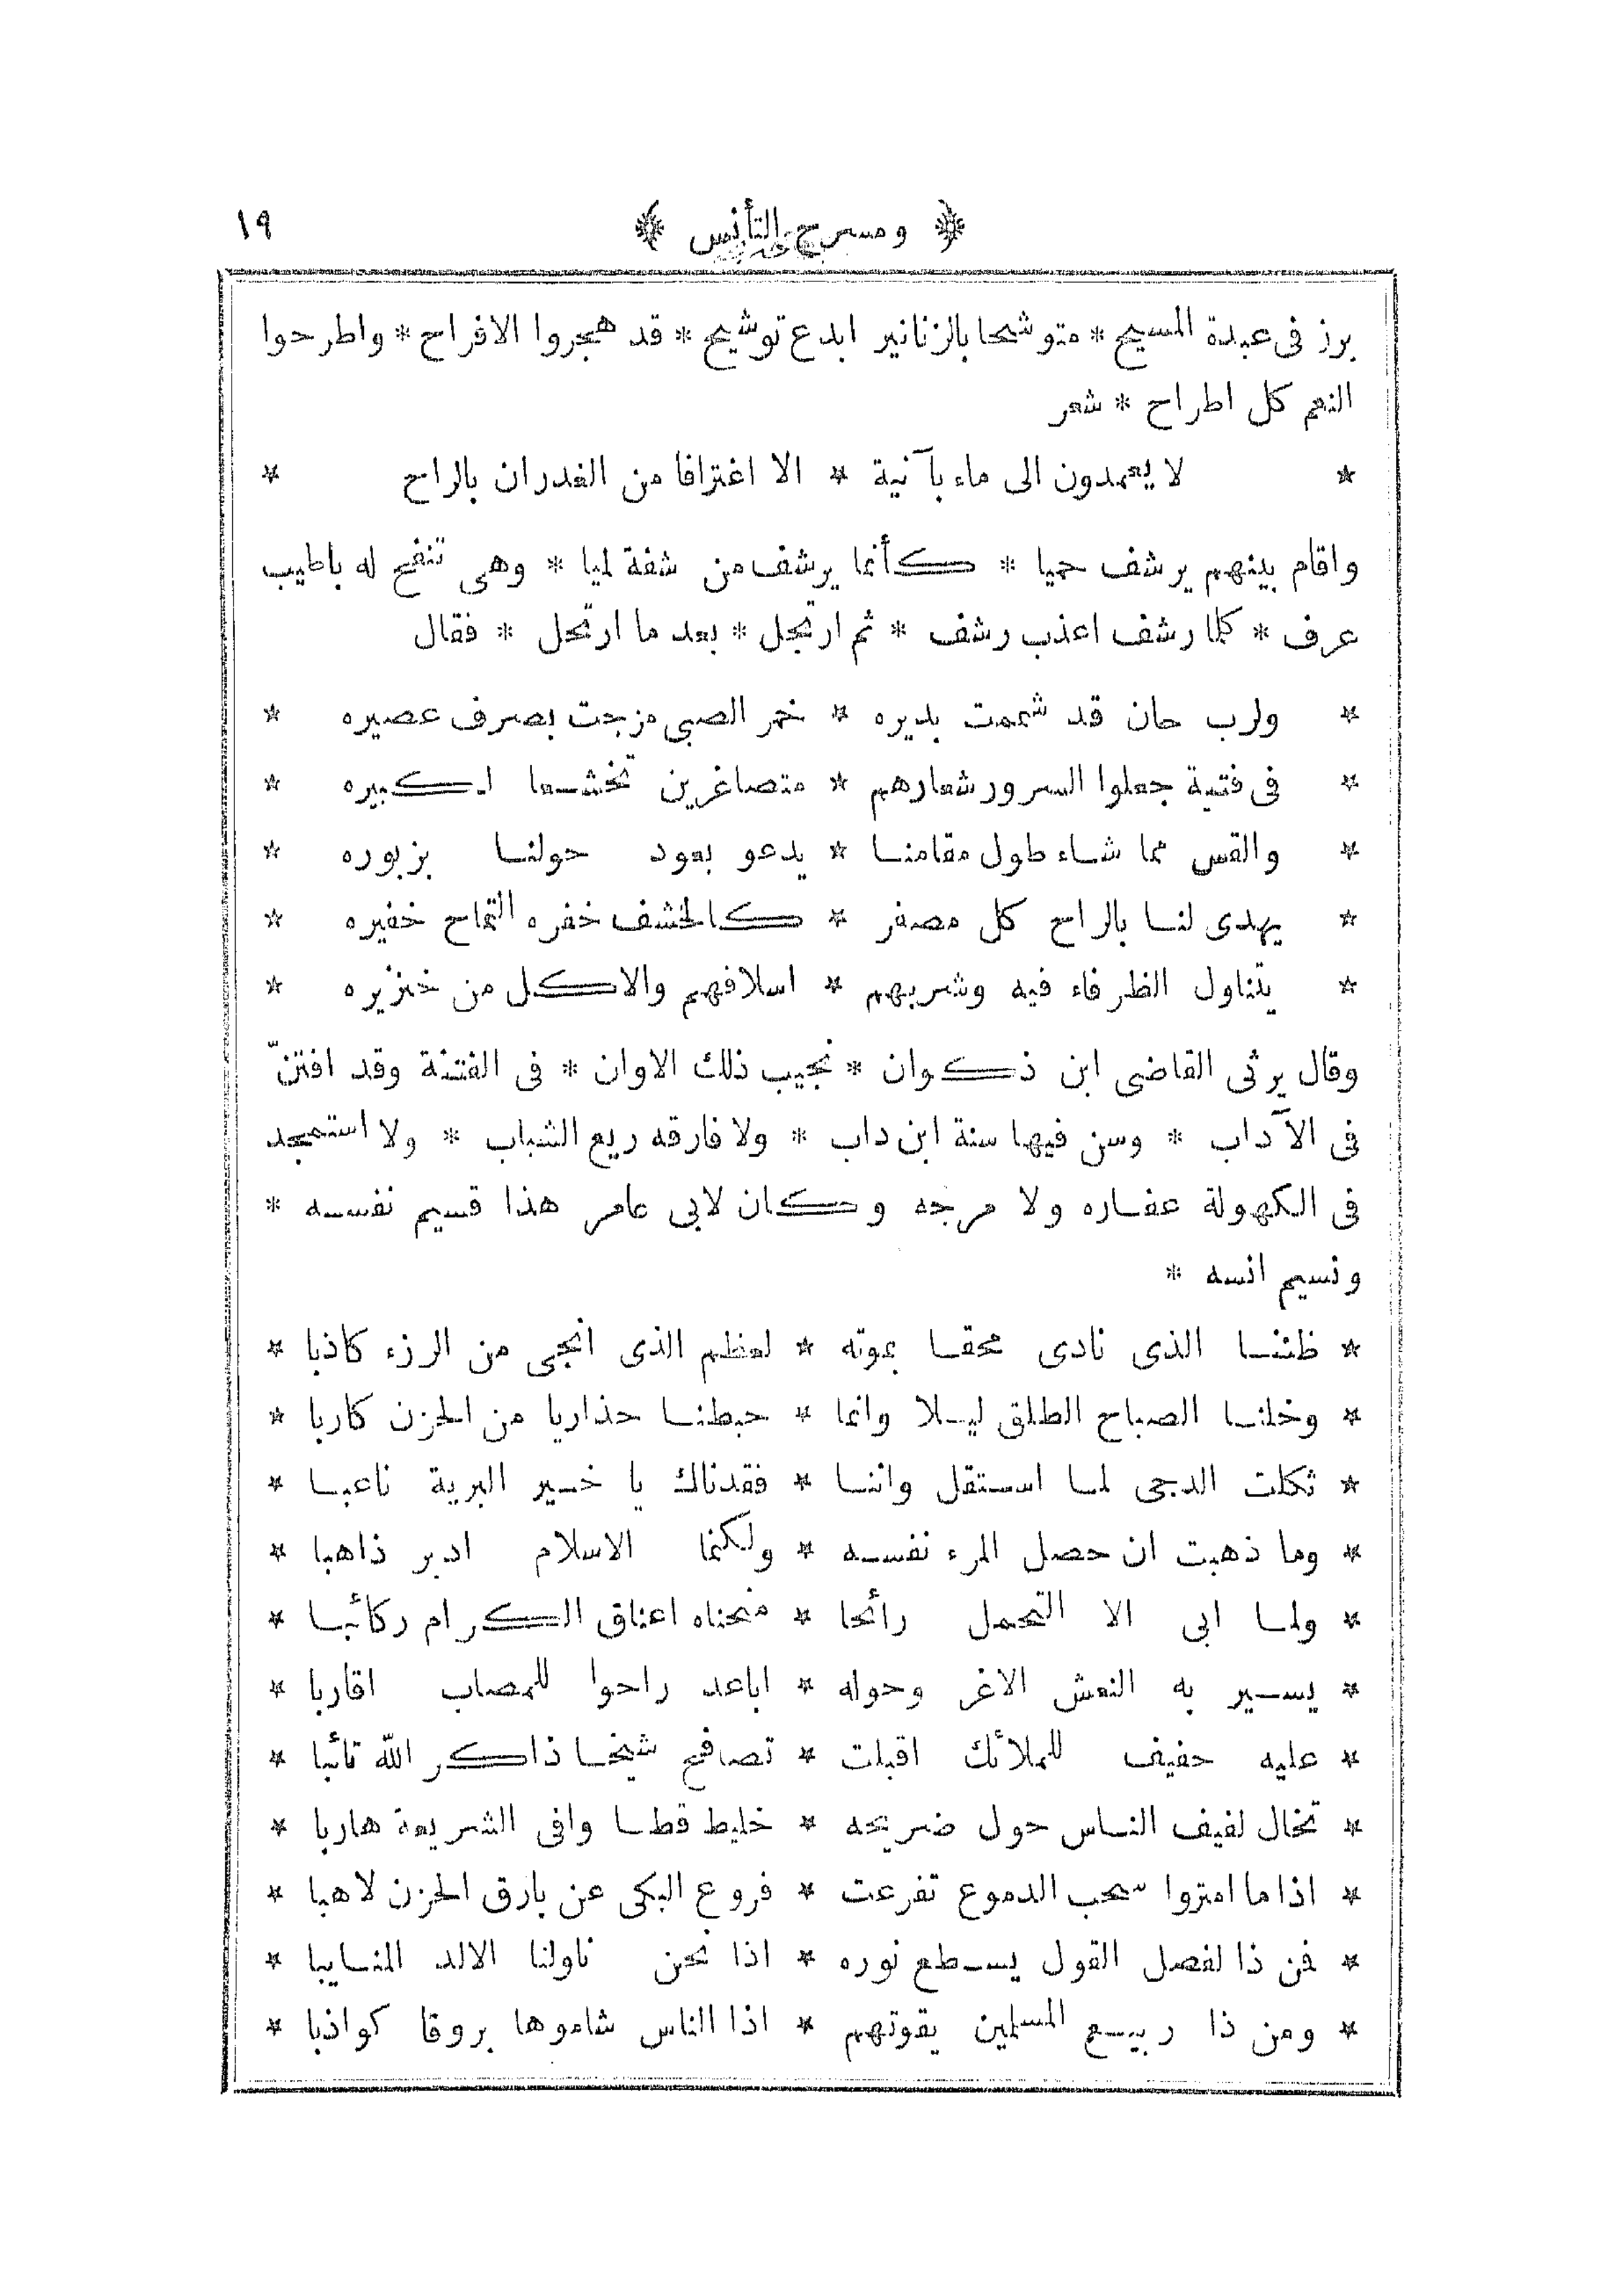 ﴿ ومسرح التأنس ﴾ ١٩
برز فى عبدة المسيح * متوشحا بالزنانير ابدع توشيح * قد هجروا الافراح * واطرحوا
النعم كل اطراح * شعر
* لا يعمدون الى ماء بآنية * الا اغترافا من الغدران بالراح *
واقام بينهم يرشف حميا * كأنما يرشف من شفة لميا * وهى تنفح له باطيب
عرف * كلما رشف اعذب رشف * ثم ارتجل * بعد ما ارتحل * فقال
* ولرب حان قد شممت بديره * خمر الصبى مزجت بصرف عصيره *
* فى فتية جعلوا السرور شعارهم * متصاغرين تخشعا لكبيره *
* والقس مما شاء طول مقامنا * يدعو بعود حولنا بزبوره *
* يهدى لنا بالراح كل مصفر * كالخشف خفره التماح خفيره *
* يتناول الظرفاء فيه وشربهم * اسلافهم والاكل من خنزيره *
وقال يرثى القاضى ابن ذكوان * نجيب ذلك الاوان * فى الفتنة وقد افتنّ
فى الآداب * وسن فيها سنة ابن داب * ولا فارقه ريع الشباب * ولا استمجد
فى الكهولة عفاره ولا مرجه وكان لابى عامر هذا قسيم نفسه *
ونسيم انسه *
* ظننا الذى نادى محقا بموته * لعظم الذى انجى من الرزء كاذبا *
* وخلنا الصباح الطلق ليلا وانما * حبطنا حذاريا من الحزن كاربا *
* ثكلت الدجى لما استقل واننا * فقدناك يا خير البرية ناعبا *
* وما ذهبت ان حصل المرء نفسه * ولكنما الاسلام ادبر ذاهبا *
* ولما ابى الا التحمل رائحا * منحناه اعناق الكرام ركائبا *
* يسير به النعش الاغر وحوله * اباعد راحوا للمصاب اقاربا *
* عليه حفيف للملائك اقبلت * تصافح شيخا ذاكر الله تائبا *
* تخال لفيف الناس حول ضريحه * خليط قطا وافى الشريعة هاربا *
* اذا ما امتروا سحب الدموع تفرعت * فروع البكى عن بارق الحزن لاهبا *
* فمن ذا لفصل القول يسطع نوره * اذا نحن ناولنا الالد المنايبا *
* ومن ذا ربيع المسلمين يقوتهم * اذا الناس شاموها بروقا كواذبا *